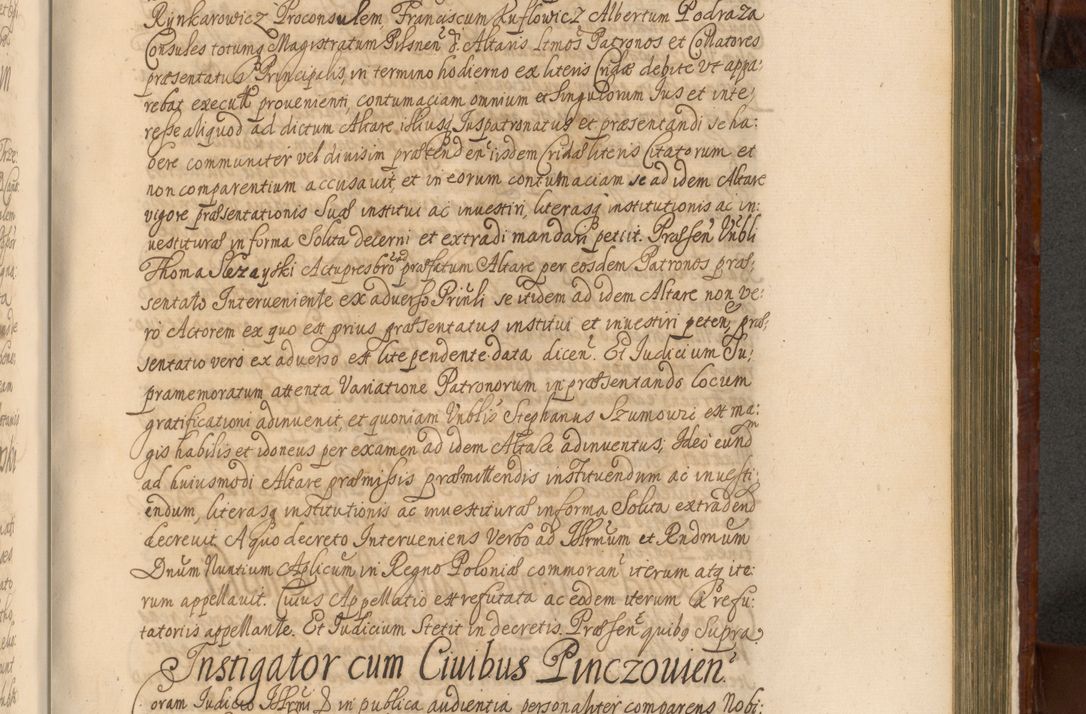 Rynkarowicz Proconsulem, Franciscum Kuflowicz Albertum Podraza
Consules totumq Magistratum Pilsnen̄ & Altaris Ltmos Patronos et Collatores
præsentatus Principalis, in termino hodierno ex literis Cridæ debite ut appa:
rebat execut̄ provenienti, contumaciam omnium et singulorum Jus et inte,
resse aliquod ad dictum Altare illiusq Juspatronatus et præsentandi se ha:
bere communiter vel divisim prætenden̄ iisdem Cridæ literis Citatorum et
non comparentium accusavit et in eorum contumaciam se ad idem Altare
vigore præsentationis suæ institui ac investiri, literasq institutionis ac in:
vestituræ in forma Solita decerni et extradi mandari petiit. Præsen̄ Vnbli
Thoma Slezayski Actupresbr̄o ad præfatum Altare per eosdem Patronos præ,
sentato Interveniente ex adverso Prinli se itidem ad idem Altare non ve:
ro Actorem ex quo est prius præsentatus institui et investiri peten̄, præ,
sentatio vero ex adverso est lite pendente data dicen̄. Et Judicium Su,
pramemoratum attenta Variatione Patronorum in præsentando locum
gratificationi adinvenit, et quoniam Vnblis Stephanus Szumowizi est ma:
gis habilis et idoneus per examen ad idem Altare adinventus; Ideo eundm
ad huiusmodi Altare præmissis præmittendis instituendum ac investi,
endum, literasq institutionis ac investituræ in forma Solita extradend
decrevit A quo decreto Interveniens Verbo ad Illrmum et Rndmum
Dnum Nuntium Aplicum in Regno Poloniæ commoran̄ iterum atq ite:
rum appellavit. Cuius Appellatio est refutata ac eodem iterum a refu:
tatoriis appellante. Et Judicium Stetit in decretis. Præsen̄ quibq Supra
Instigator cum Civibus Pinczovien̄.
Coram Judicio Illrmi D in publica audientia personaliter comparens Nobi: